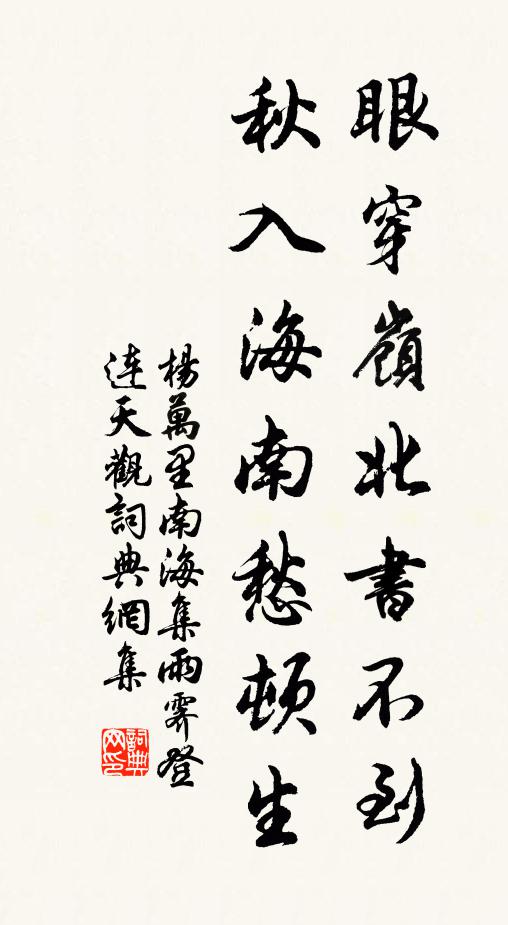 眼穿嶺北書不到
秋入海南愁頓生
楊萬里南海集雨霽登
連天觀詞典網集
詞典
网印